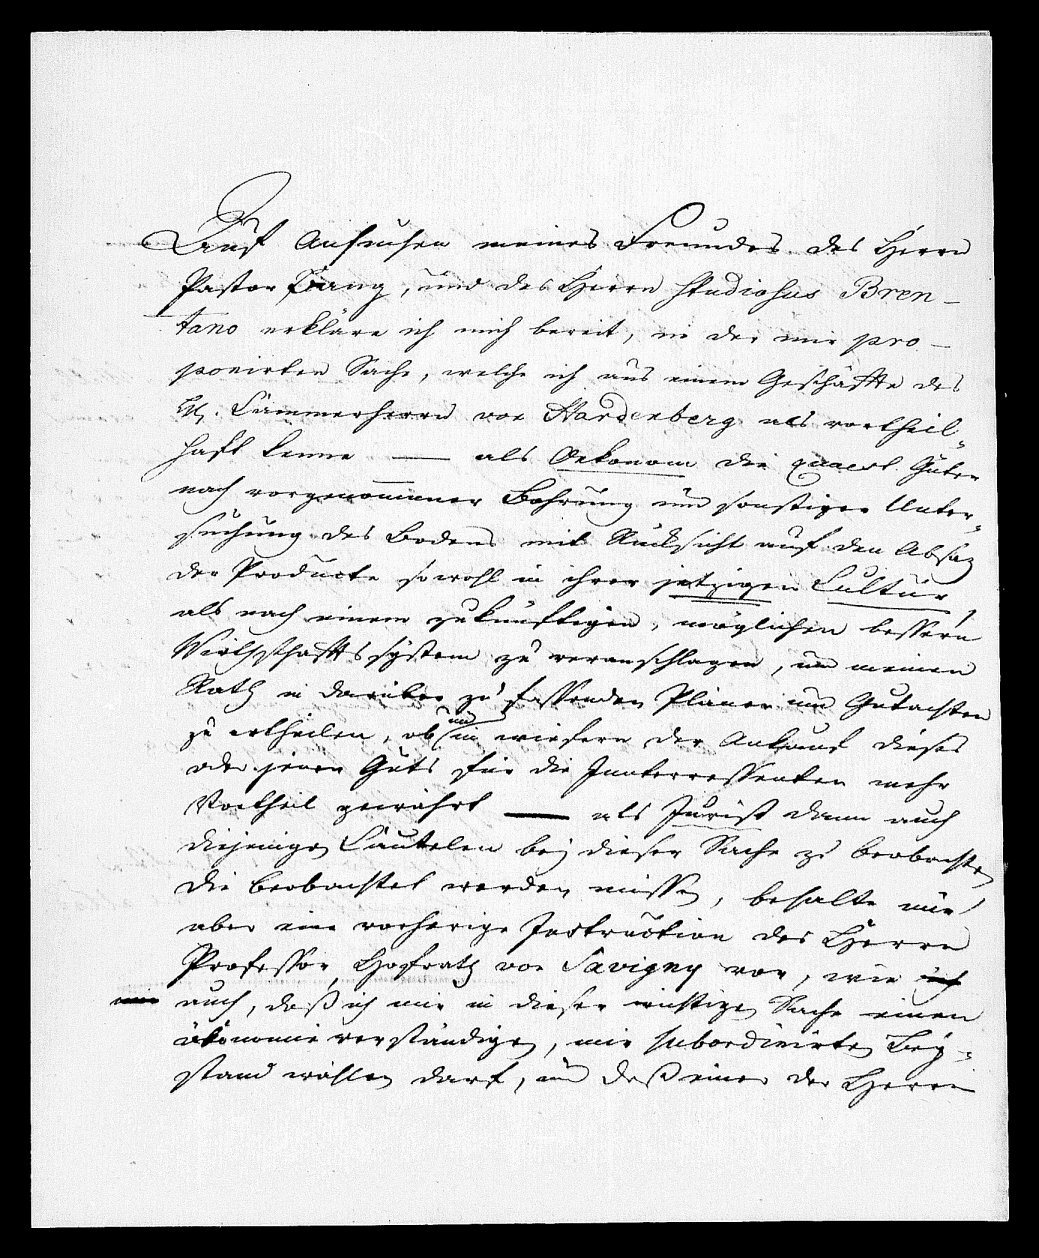 Auf Ansuchen meines Freundes des Herrn
Pastor Bang, und des Herrn Studiosus Bren-
tano erkläre ich mich bereit, in der mir pro-
ponirten Sache, welche ich aus einem Geschäffte des
H. Cammerherrn von Hardenberg als vortheil-
haft kenne — als Oekonom die quaest. Güter
nach vorgenommener Bohrung und sonstiger Unter-
suchung des Bodens mit Rücksicht auf den Absaz
der Producte sowohl in ihrer jetzigen Cultur
als nach einem zukünftigen, möglichen bessern
Wirthschafftssystem zu veranschlagen, und meinen
Rath in darüber zu fassenden Planen und Gutachten
zu ertheilen, ob und in wiefern der Ankauf dieses
oder jenen Guts für die Innterressenten mehr
Vortheil gewährt — als Jurist dann auch
diejenigen Cautelen bey dieser Sache zu beobachten
die beobachtet werden müssen, behalte mir
aber eine vorherige Instruction des Herrn
Professor, Hofrath von Savigny vor, wie ich
auch, daß ich mir in dieser wichtigen Sache einen
ökonomieverständigen, mir subordinirten Bey-
stand wählen darf, und daß einer der Herrn